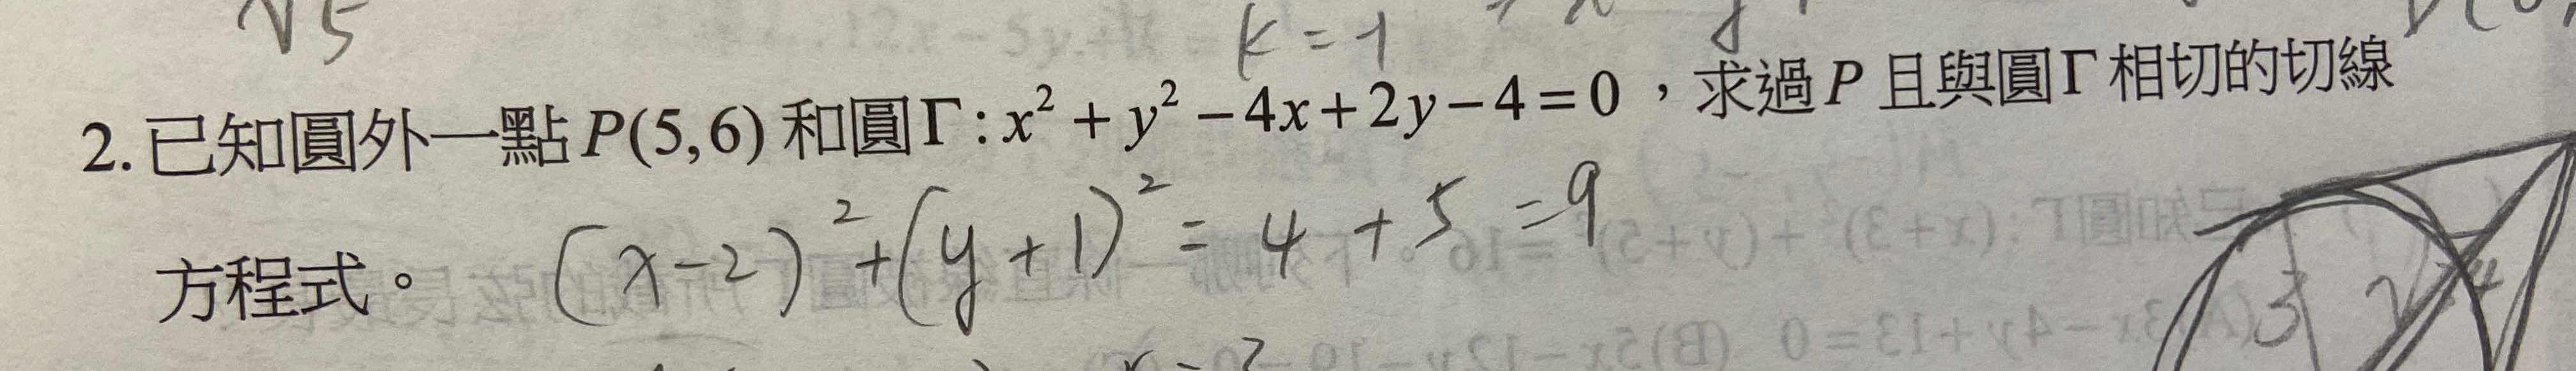 √5
k=1
2.已知圓外一點P(5,6)和圓Γ:x²+y²-4x+2y-4=0，求過P且與圓Γ相切的切線
方程式。
(x-2)²+(y+1)²=4+5=9
3